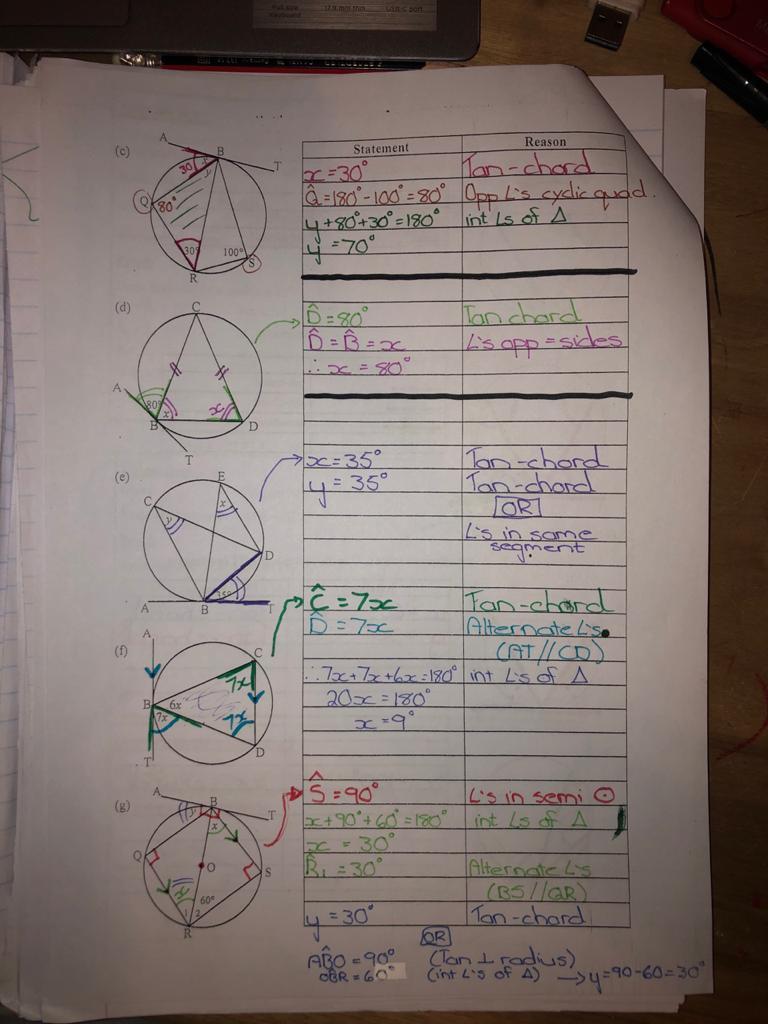 Full size Keyboard
17.9 mm thin
USB-C port
Statement Reason
(c) A B T Q R S x y 30 80° 30° 100°
x = 30° Tan-chord
Q̂ = 180° - 100° = 80° Opp L's cyclic quad.
y + 80° + 30° = 180° int Ls of Δ
y = 70°
(d) C A B D T 80° x x
D̂ = 80° Tan chord
D̂ = B̂ = x L's opp = sides
∴ x = 80°
(e) E C D A B T y x 35°
x = 35° Tan-chord
y = 35° Tan-chord
OR
L's in same
segment
(f) A C B D T 7x 6x 7x 7x
Ĉ = 7x Tan-chord
D̂ = 7x Alternate L's
(AT//CD)
∴ 7x + 7x + 6x = 180° int L's of Δ
20x = 180°
x = 9°
(g) A B T Q O S R y x 60° 1 2
Ŝ = 90° L's in semi ⊙
x + 90° + 60° = 180° int Ls of Δ
x = 30°
R̂₁ = 30° Alternate L's
(BS//QR)
y = 30° Tan-chord
OR
AB̂O = 90° (Tan ⊥ radius)
OBR = 60° (int L's of Δ) → y = 90 - 60 = 30°